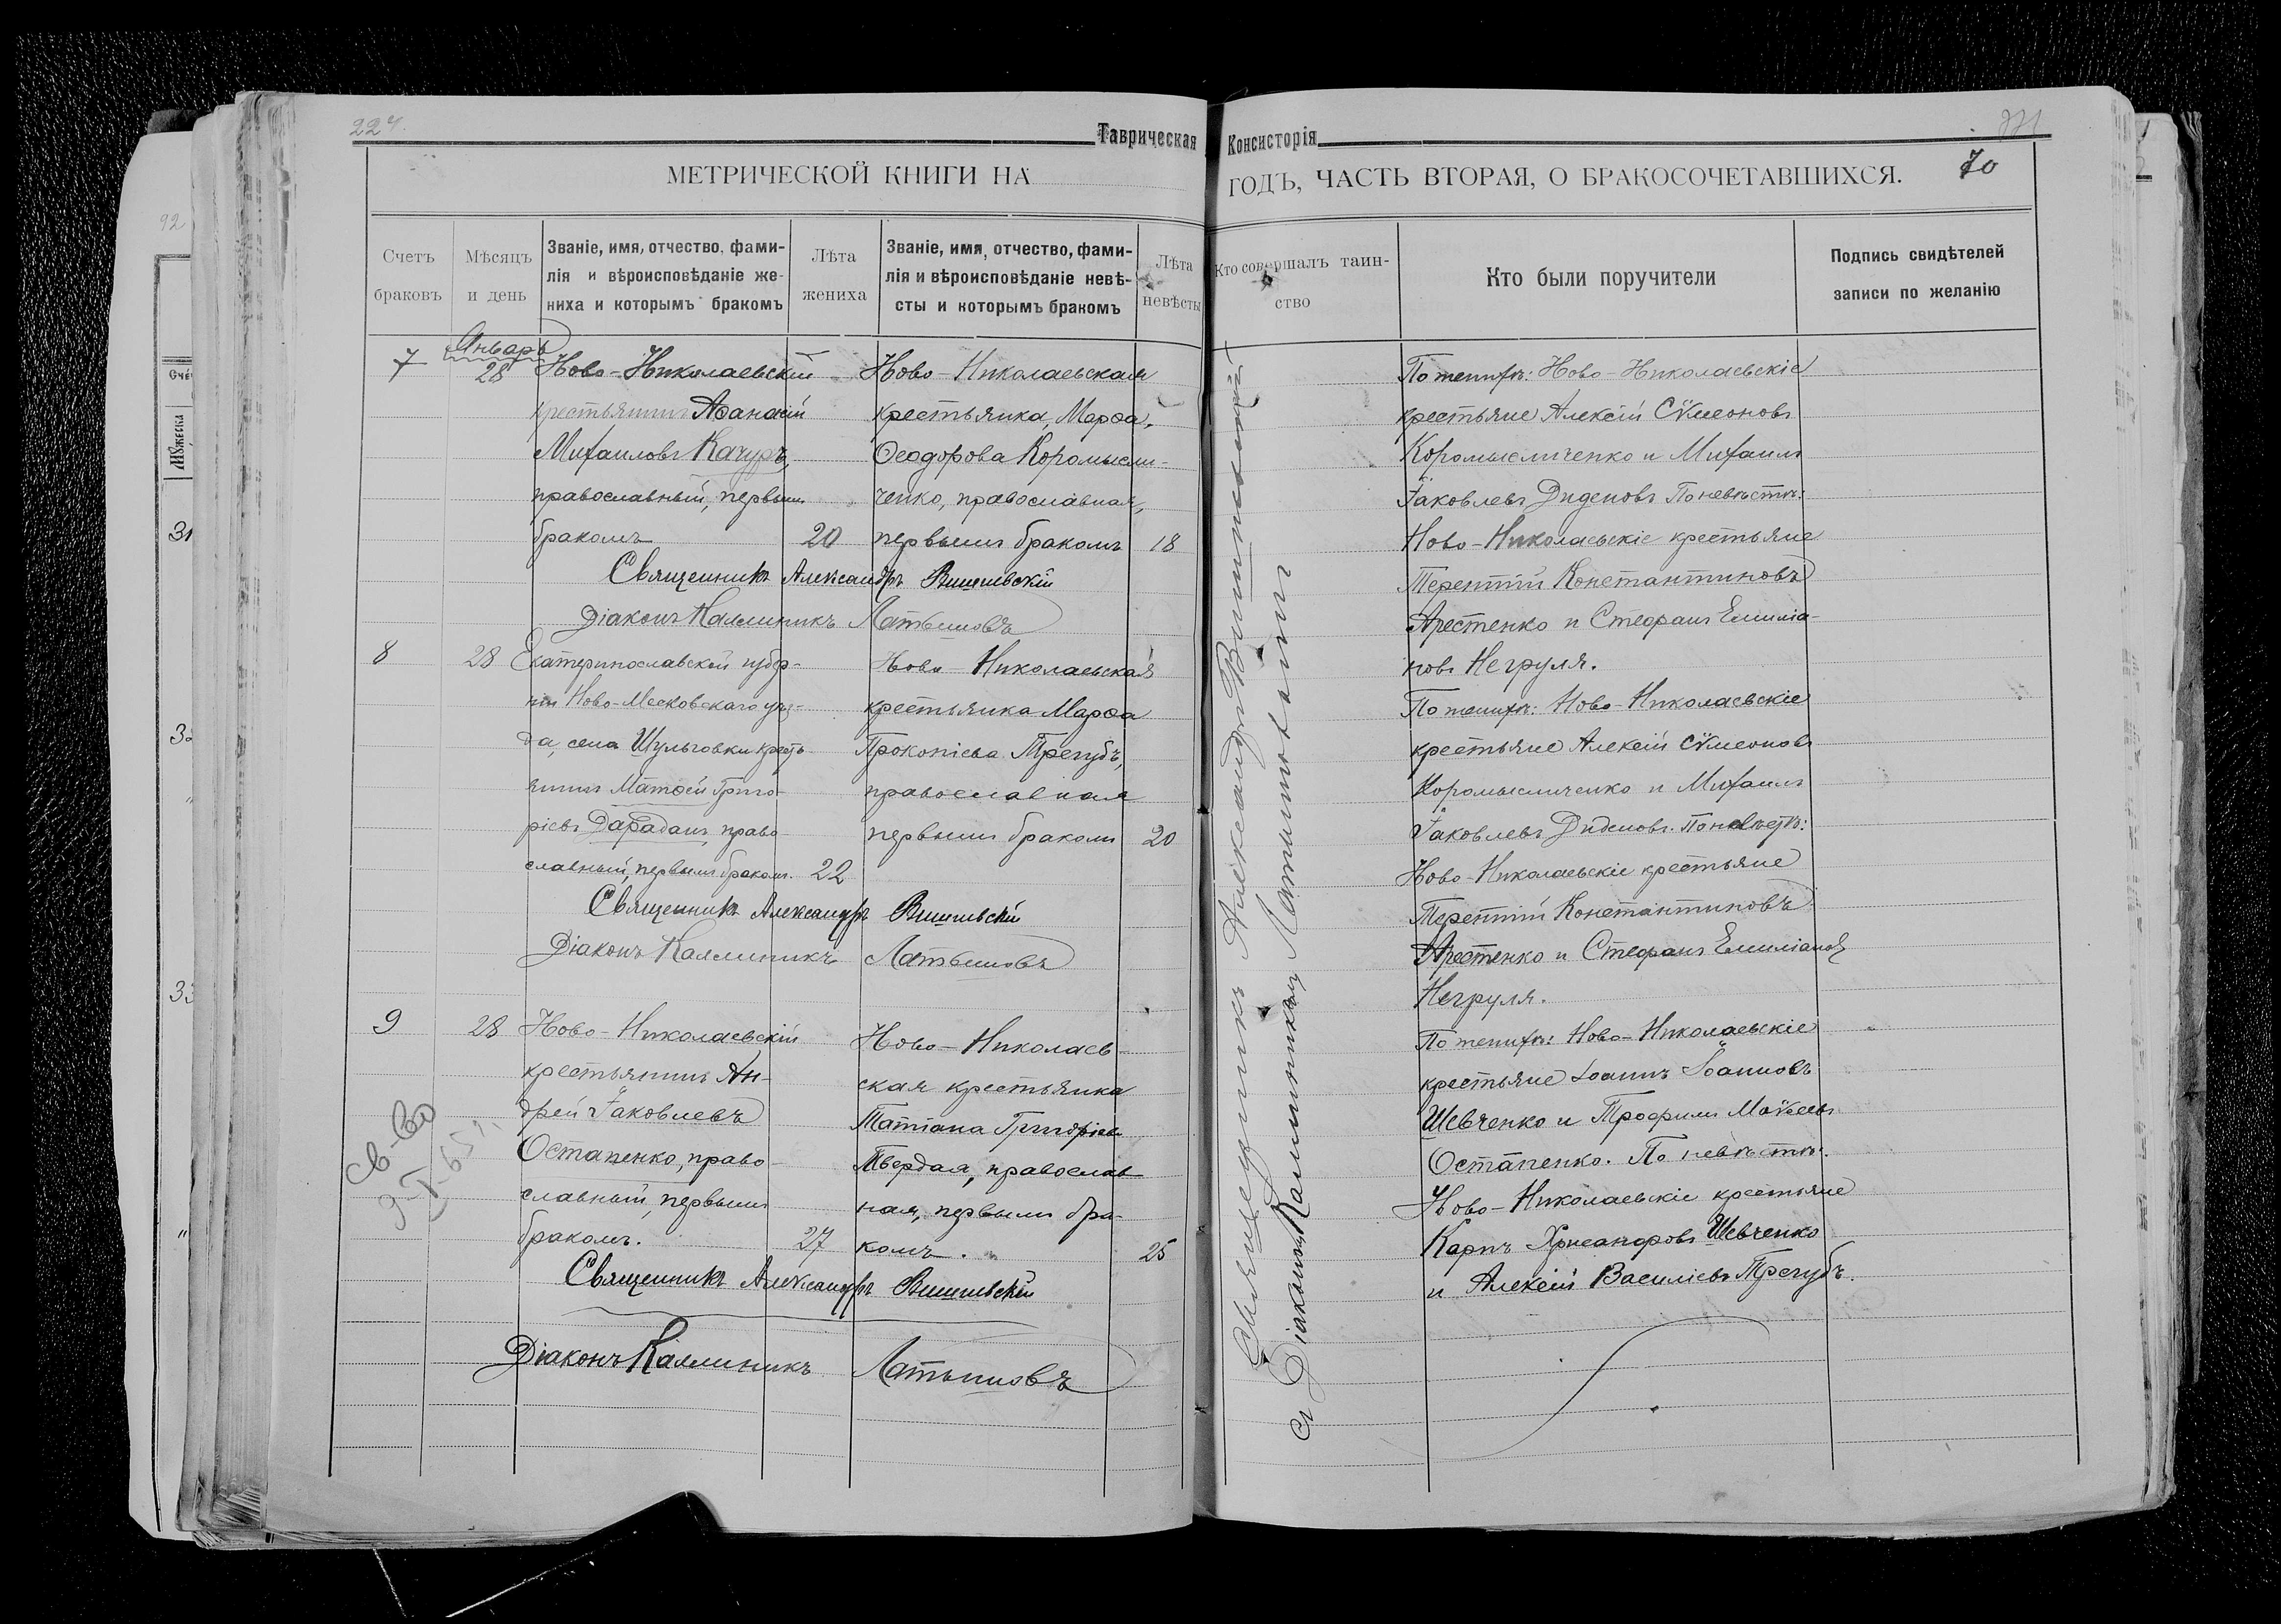 224.
Таврическая Консисторія
МЕТРИЧЕСКОЙ КНИГИ НА
ГОДЪ, ЧАСТЬ ВТОРАЯ, О БРАКОСОЧЕТАВШИХСЯ.
70
Счетъ
браковъ
Мѣсяцъ
и день
Званіе, имя, отчество, фами-
лія и вѣроисповѣданіе же-
ниха и которымъ бракомъ
Лѣта
жениха
Званіе, имя, отчество, фами-
лія и вѣроисповѣданіе невѣ-
сты и которымъ бракомъ
Лѣта
невѣсты
Кто совершалъ таин-
ство
Кто были поручители
Подпись свидѣтелей
записи по желанію
Январь
7
28
Ново-Николаевскій
крестьянинъ Аѳанасій
Михаиловъ Качуръ,
православный, первымъ
бракомъ
20
Ново-Николаевская
крестьянка, Марѳа,
Ѳеодорова Коромысли-
ченко, православная,
первымъ бракомъ
18
Священникъ Александръ Вишневскій
Діаконъ Каллиникъ Латышовъ
По женихѣ: Ново-Николаевскіе
крестьяне Алексій Сѵмеоновъ
Коромысличенко и Михаилъ
Іаковлевъ Диденовъ По невѣстѣ:
Ново-Николаевскіе крестьяне
Терентій Константиновъ
Арестенко и Стефанъ Емиліа-
новъ Негруля.
8
28
Екатеринославской губер-
ніи Ново-Московскаго уѣз-
да, села Шульговки кресть-
янинъ Матѳей Григо-
рієвъ Дарадан, право-
славный, первымъ бракомъ.
22
Ново-Николаевская
крестьянка Марѳа
Прокопіева Трегубъ,
православная
первымъ бракомъ
20
Священникъ Александръ Вишневскій
Діаконъ Каллиникъ Латышовъ
По женихѣ: Ново-Николаевскіе
крестьяне Алексій Сѵмеоновъ
Коромысличенко и Михаилъ
Іаковлевъ Диденовъ. По невѣстѣ:
Ново-Николаевскіе крестьяне
Терентій Константиновъ
Арестенко и Стефанъ Емиліановъ
Негруля.
9
28
Ново-Николаевскій
крестьянинъ Ан-
дрей Іаковлевъ
Остапенко, право-
славный, первымъ
бракомъ.
27
Ново-Николаев-
ская крестьянка
Татіана Григоріева
Твердая, православ-
ная, первымъ бра-
комъ.
25
Священникъ Александръ Вишневскій
Діаконъ Каллиникъ Латышовъ
По женихѣ: Ново-Николаевскіе
крестьяне Іоаннъ Іоанновъ
Шевченко и Трофимъ Моѵсеевъ
Остапенко. По невѣстѣ.
Ново-Николаевскіе крестьяне
Карпъ Хрисанфовъ Шевченко
и Алексій Василіевъ Трегубъ.
св-во
Священникъ Александръ Вишневскій
съ Діакономъ Каллиникомъ Латышовымъ
Счё
Мужеска
92
31
32
33